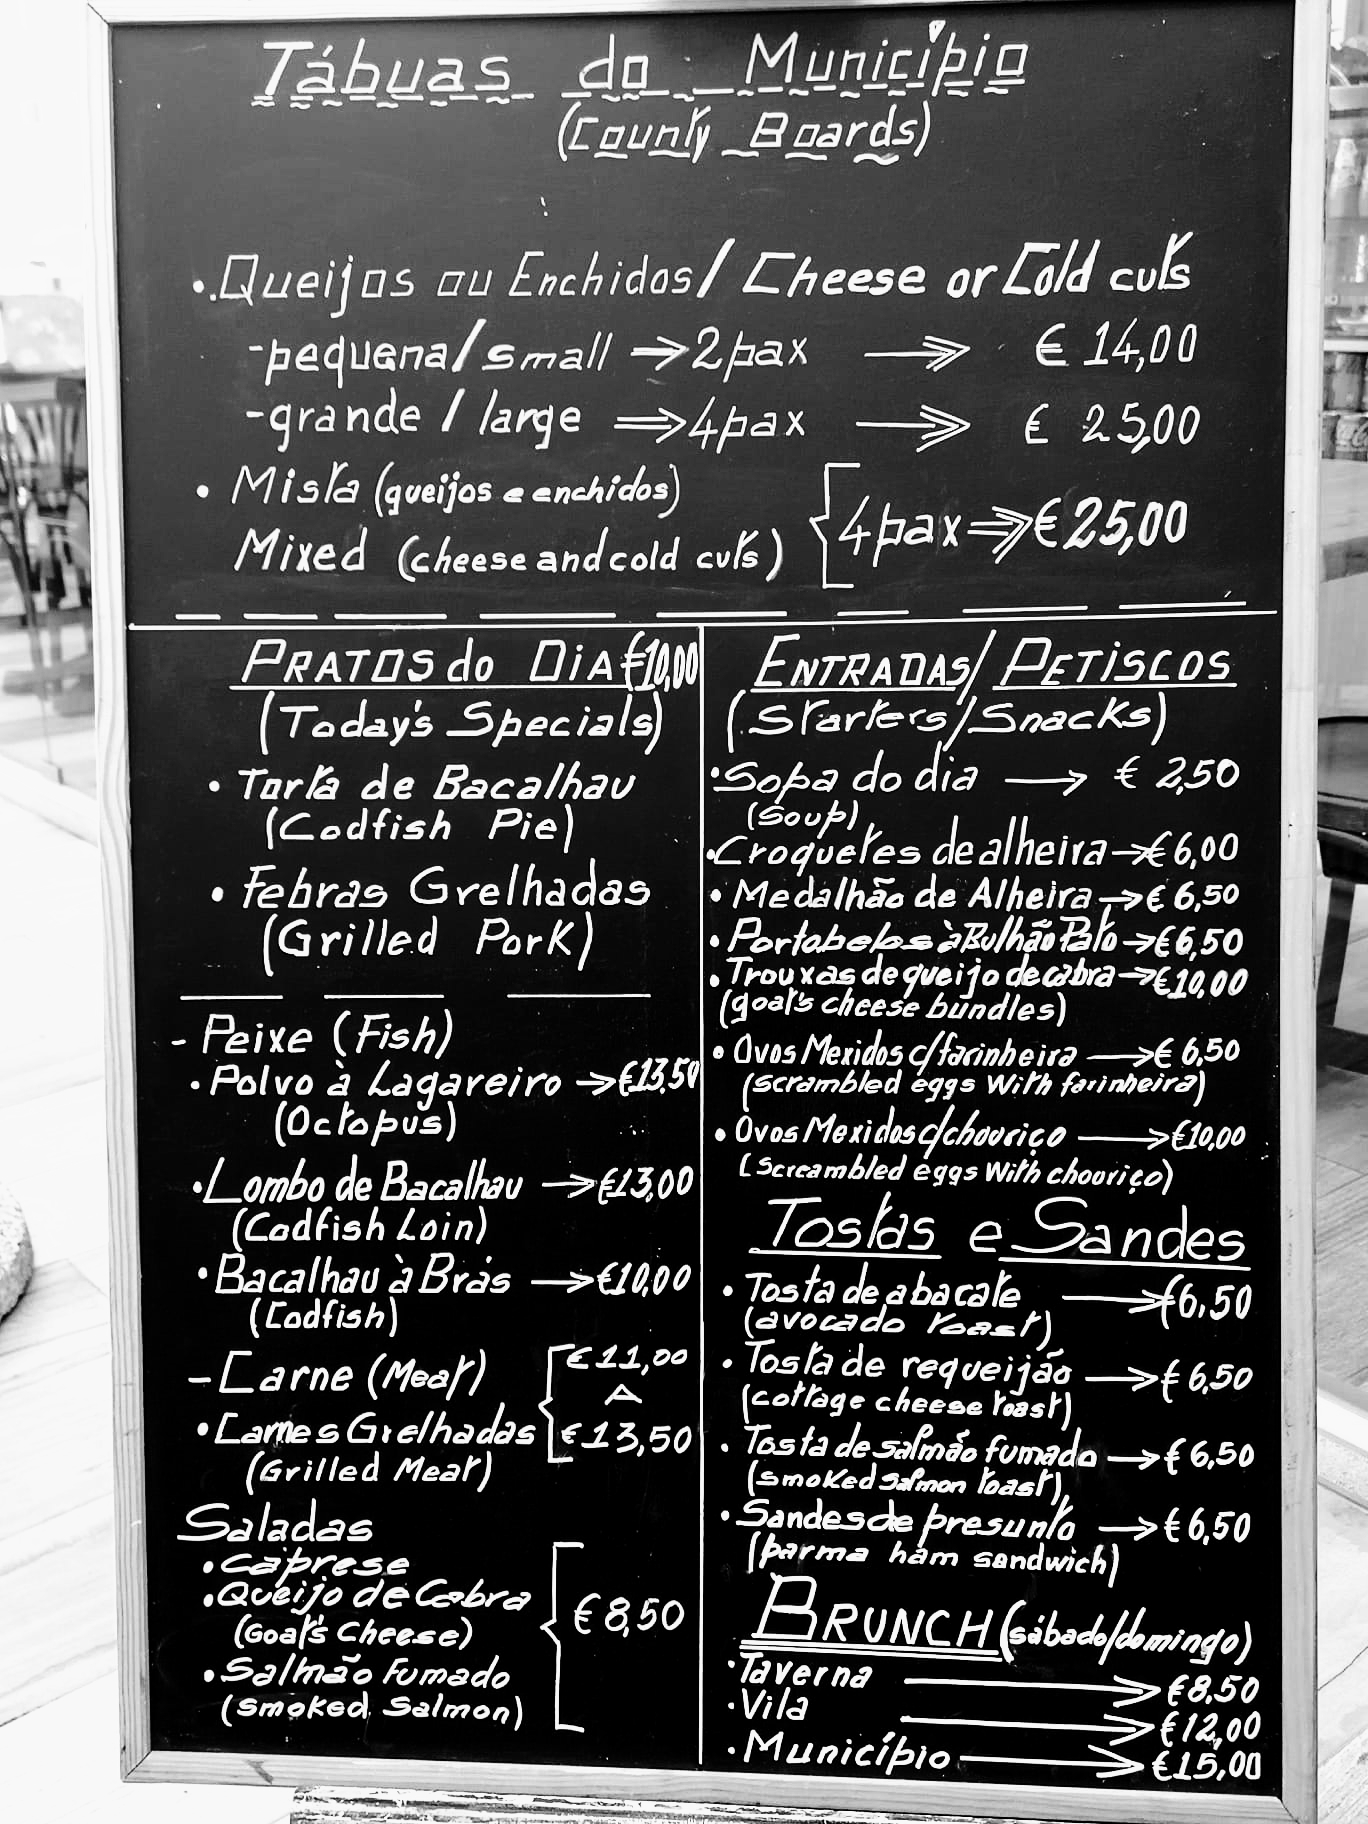 Tábuas do Município
(County Boards)
• Queijos ou Enchidos / Cheese or Cold cuts
-pequena/small ⇒ 2pax → € 14,00
-grande / large ⇒ 4pax → € 25,00
• Mista (queijos e enchidos)
Mixed (cheese and cold cuts)
4pax ⇒ € 25,00
PRATOS do DiA €10,00
(Today's Specials)
• Torta de Bacalhau
(Codfish Pie)
• Febras Grelhadas
(Grilled Pork)
- Peixe (Fish)
• Polvo à Lagareiro → €13,50
(Octopus)
• Lombo de Bacalhau → €13,00
(Codfish Loin)
• Bacalhau à Brás → €10,00
(Codfish)
- Carne (Meat)
• Carnes Grelhadas
(Grilled Meat)
€ 11,00
A
€ 13,50
Saladas
• Caprese
• Queijo de Cabra
(Goat's Cheese)
• Salmão Fumado
(Smoked Salmon)
€ 8,50
ENTRADAS / PETiSCOS
(Starters/Snacks)
• Sopa do dia → € 2,50
(Soup)
• Croquetes de alheira → € 6,00
• Medalhão de Alheira → € 6,50
• Portobelos à Bulhão Pato → € 6,50
• Trouxas de queijo de cabra → € 10,00
(goat's cheese bundles)
• Ovos Mexidos c/farinheira → € 6,50
(scrambled eggs With farinheira)
• Ovos Mexidos c/chouriço → €10,00
(Screambled eggs With chouriço)
Tostas e Sandes
• Tosta de abacate → €6,50
(avocado toast)
• Tosta de requeijão → € 6,50
(cottage cheese toast)
• Tosta de salmão fumado → € 6,50
(smoked salmon toast)
• Sandes de presunto → € 6,50
(parma ham sandwich)
BRUNCH (sábado/domingo)
• Taverna → €8,50
• Vila → €12,00
• Município → €15,00